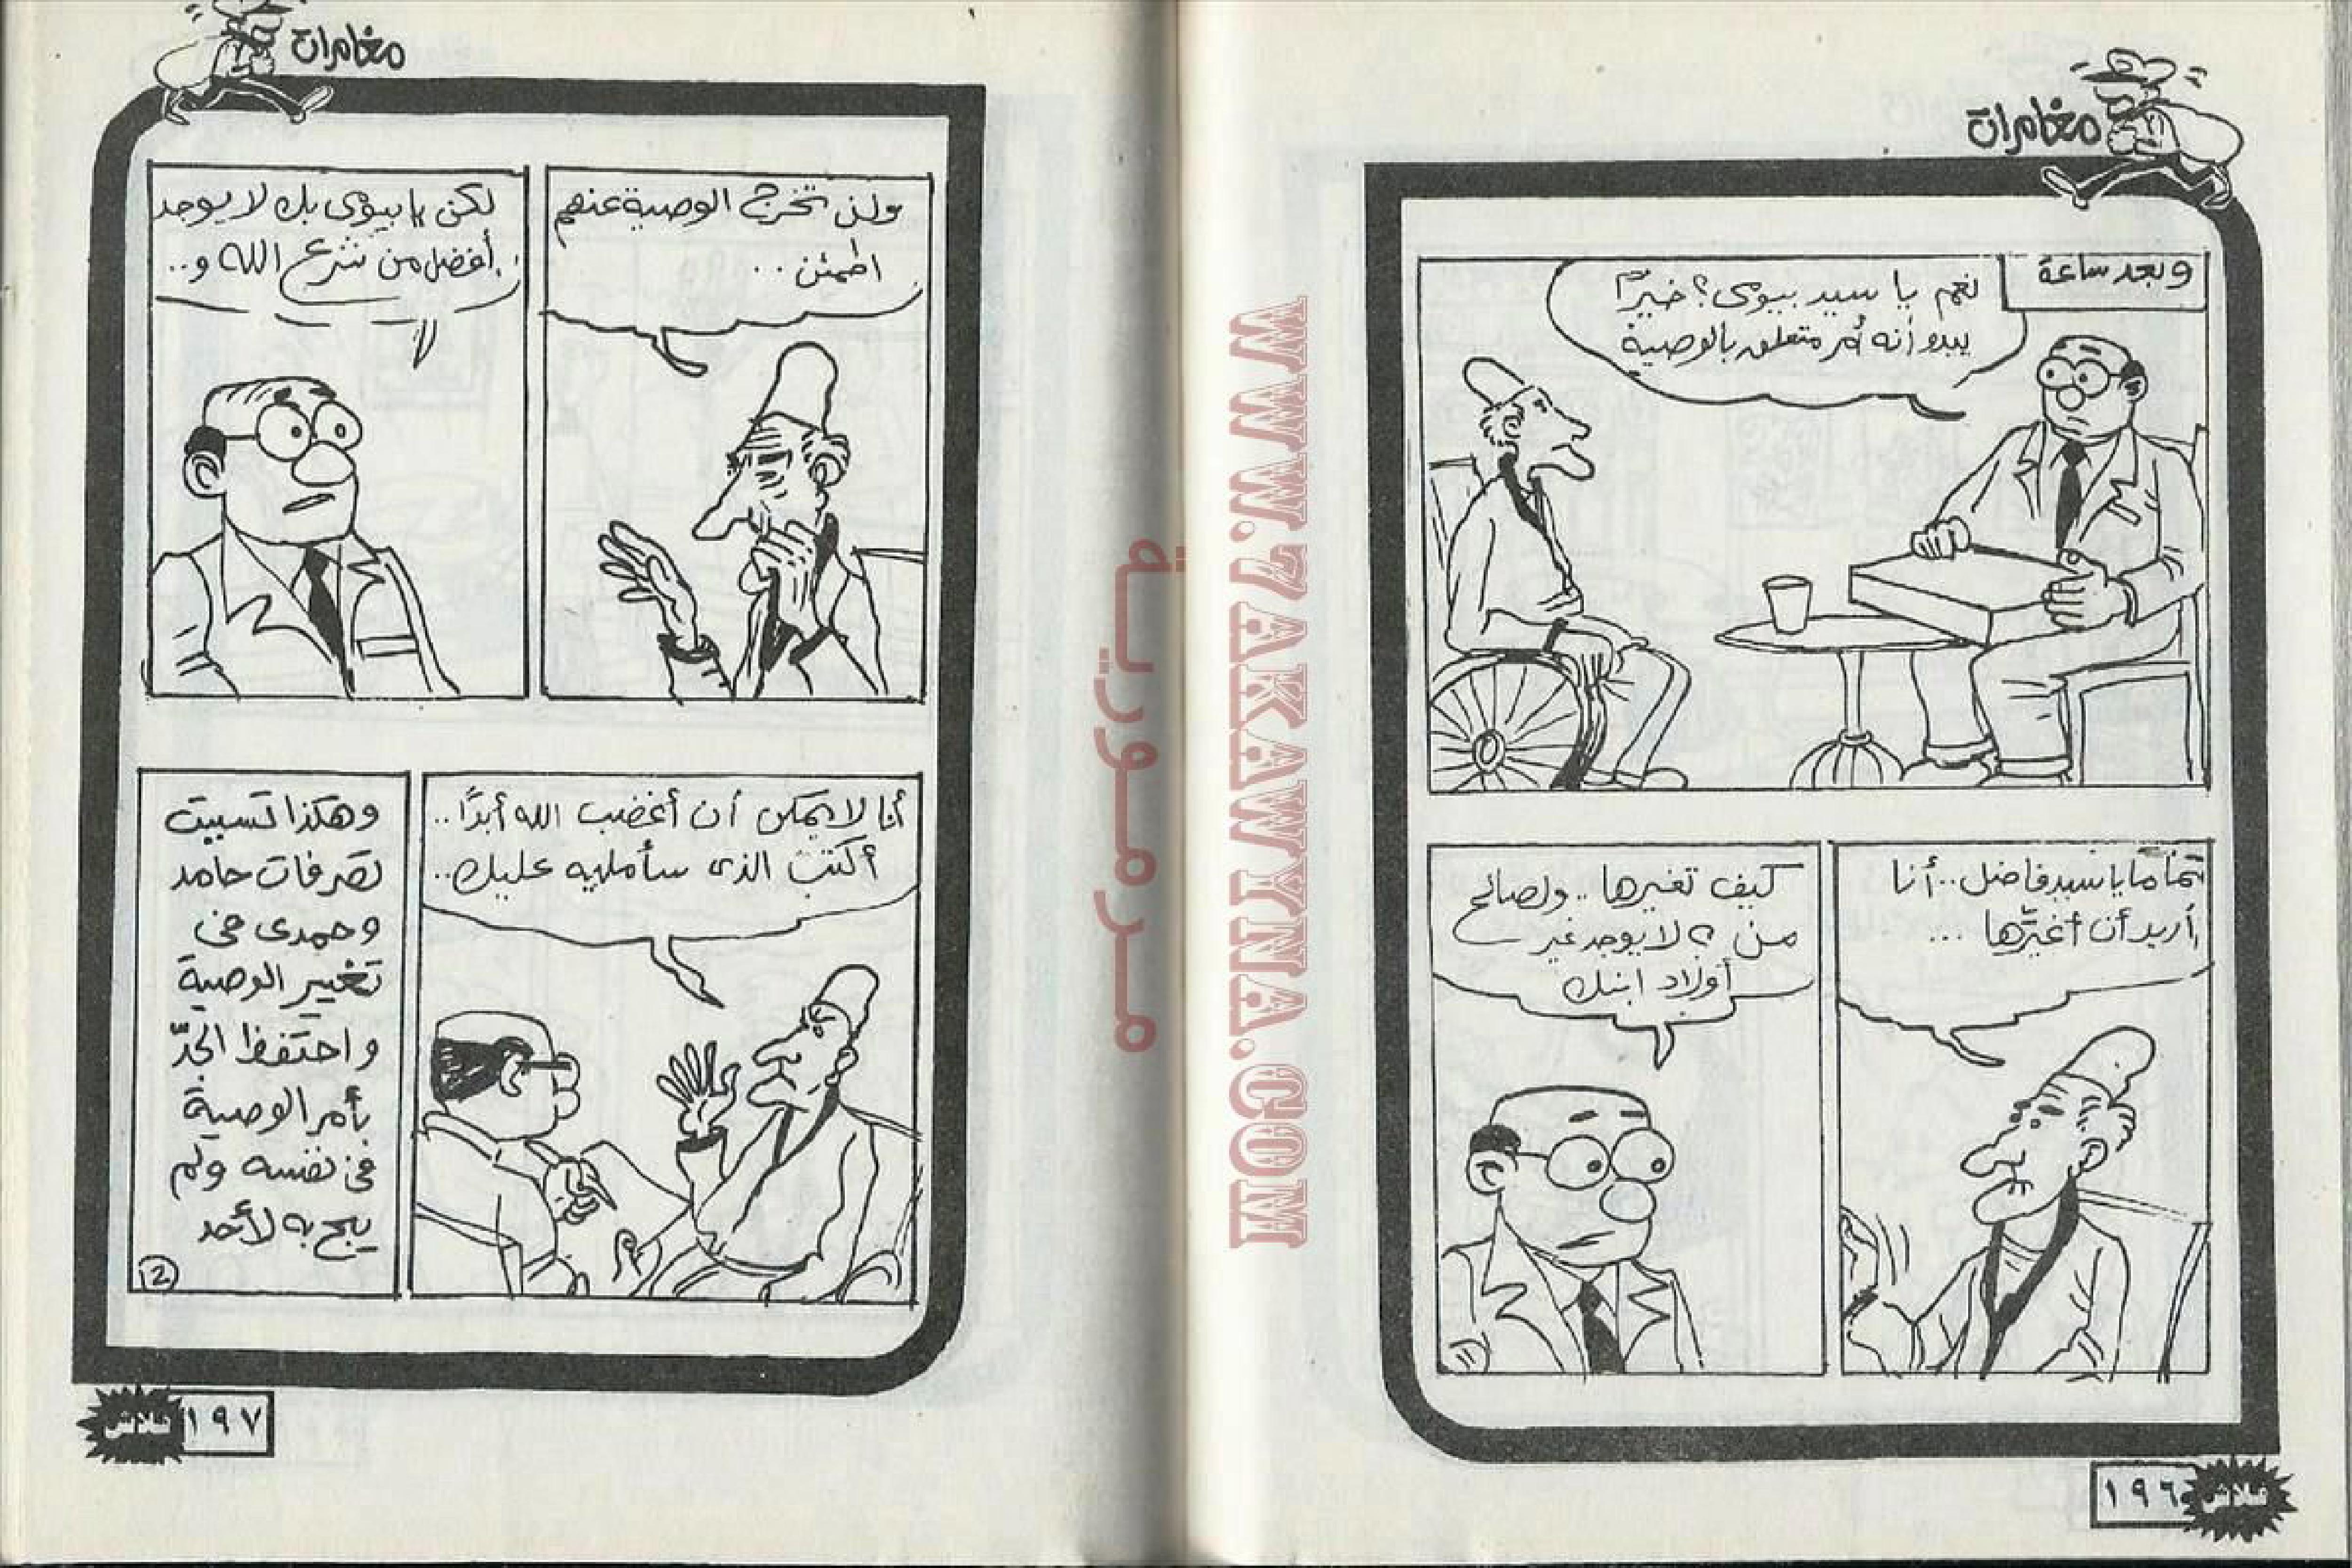 مغامرات
وبعد ساعة
نعم يا سيد بيومى؟ خيرًا
يبدو أنه أمر متعلق بالوصية
تمامًا يا سيد فاضل.. أنا
أريد أن أغيّرها ...
كيف تغيرها.. ولصالح
من ؟ لا يوجد غير
أولاد ابنك
١١
١٩٦
فلاش
مغامرات
ولن تخرج الوصية عنهم
اطمئن ..
لكن يا بيومى بك لا يوجد
أفضل من شرع الله و..
أنا لا يمكن أن أغضب الله أبدًا..
أكتب الذى سأمليه عليك..
وهكذا تسببت
تصرفات حامد
وحمدى فى
تغيير الوصية
واحتفظ الجدّ
بأمر الوصية
فى نفسه ولم
يبح به لأحد
١٩٧
فلاش
WWW.7AKAWYNA.COM
مرمورية